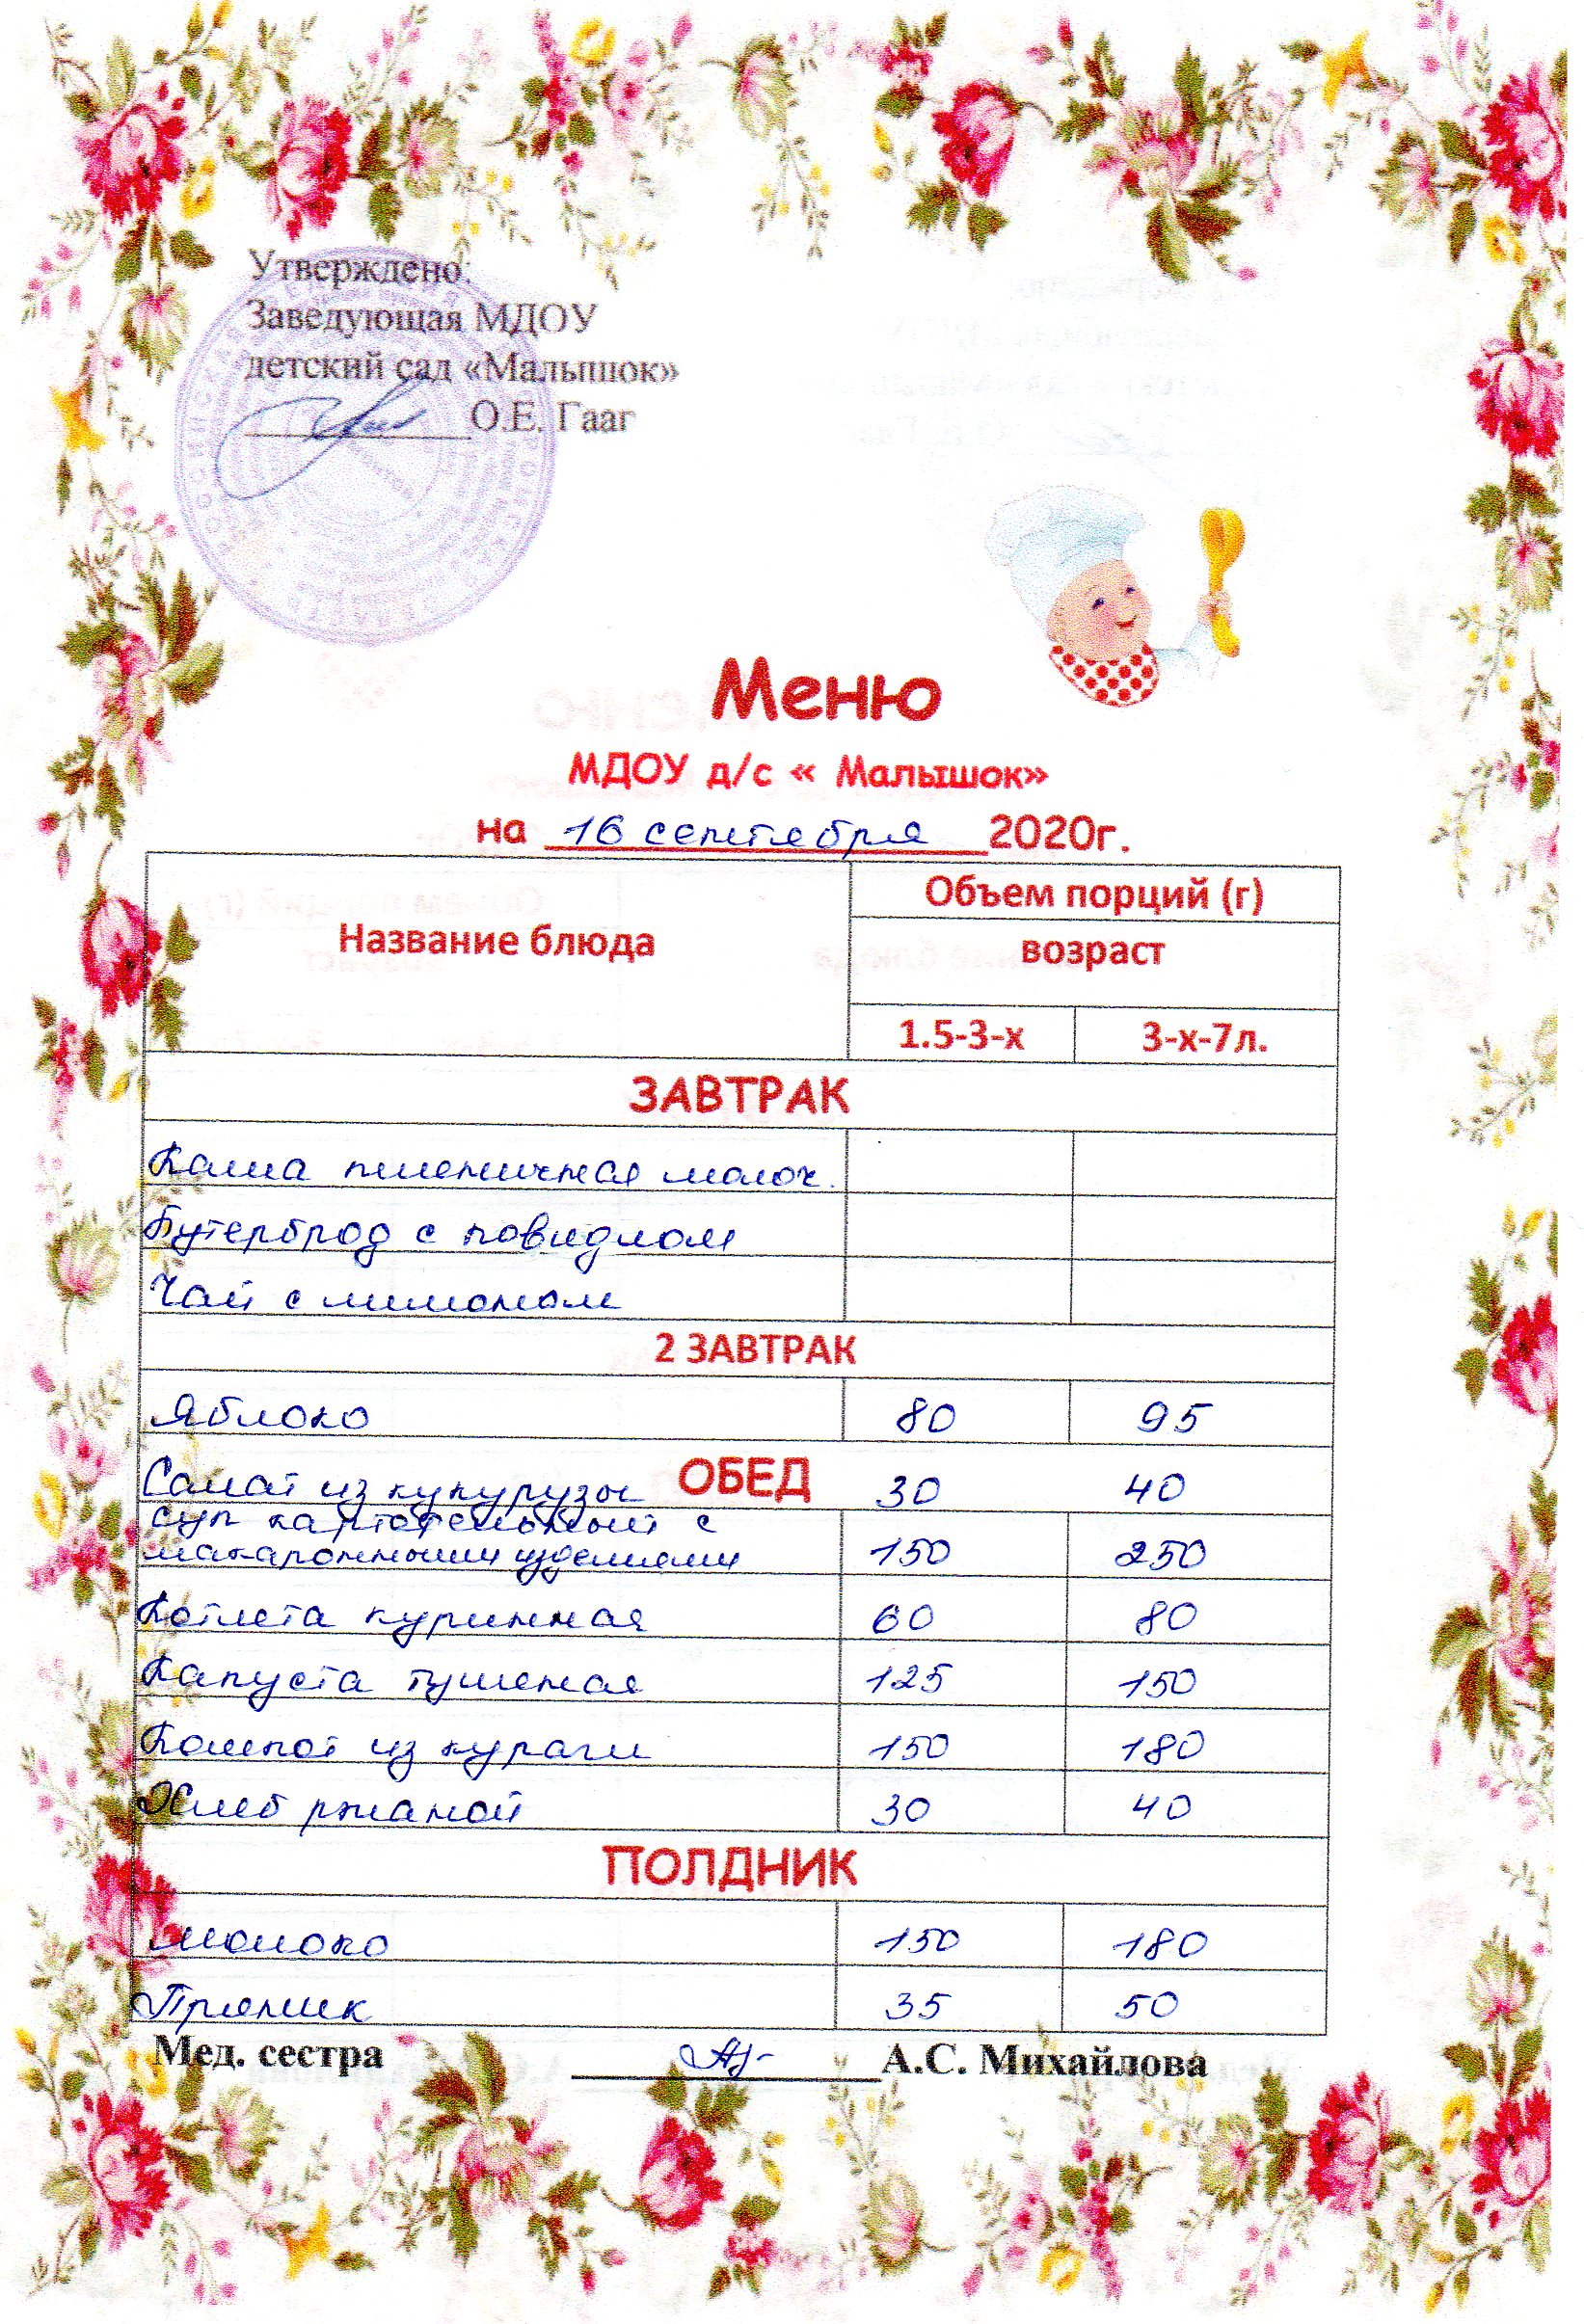 Утверждено:
Заведующая МДОУ
детский сад «Малышок»
О.Е. Гааг
Меню
МДОУ д/с « Малышок»
на 16 сентября 2020г.
Название блюда
Объем порций (г)
возраст
1.5-3-х 3-х-7л.
ЗАВТРАК
Каша пшеничная молоч.
Бутерброд с повидлом
Чай с лимоном
2 ЗАВТРАК
Яблоко 80 95
Салат из кукурузы ОБЕД 30 40
Суп картофельный с
макаронными изделиями 150 250
Котлета куринная 60 80
Капуста тушеная 125 150
Компот из кураги 150 180
Хлеб ржаной 30 40
ПОЛДНИК
Молоко 150 180
Пряник 35 50
Мед. сестра А.С. Михайлова